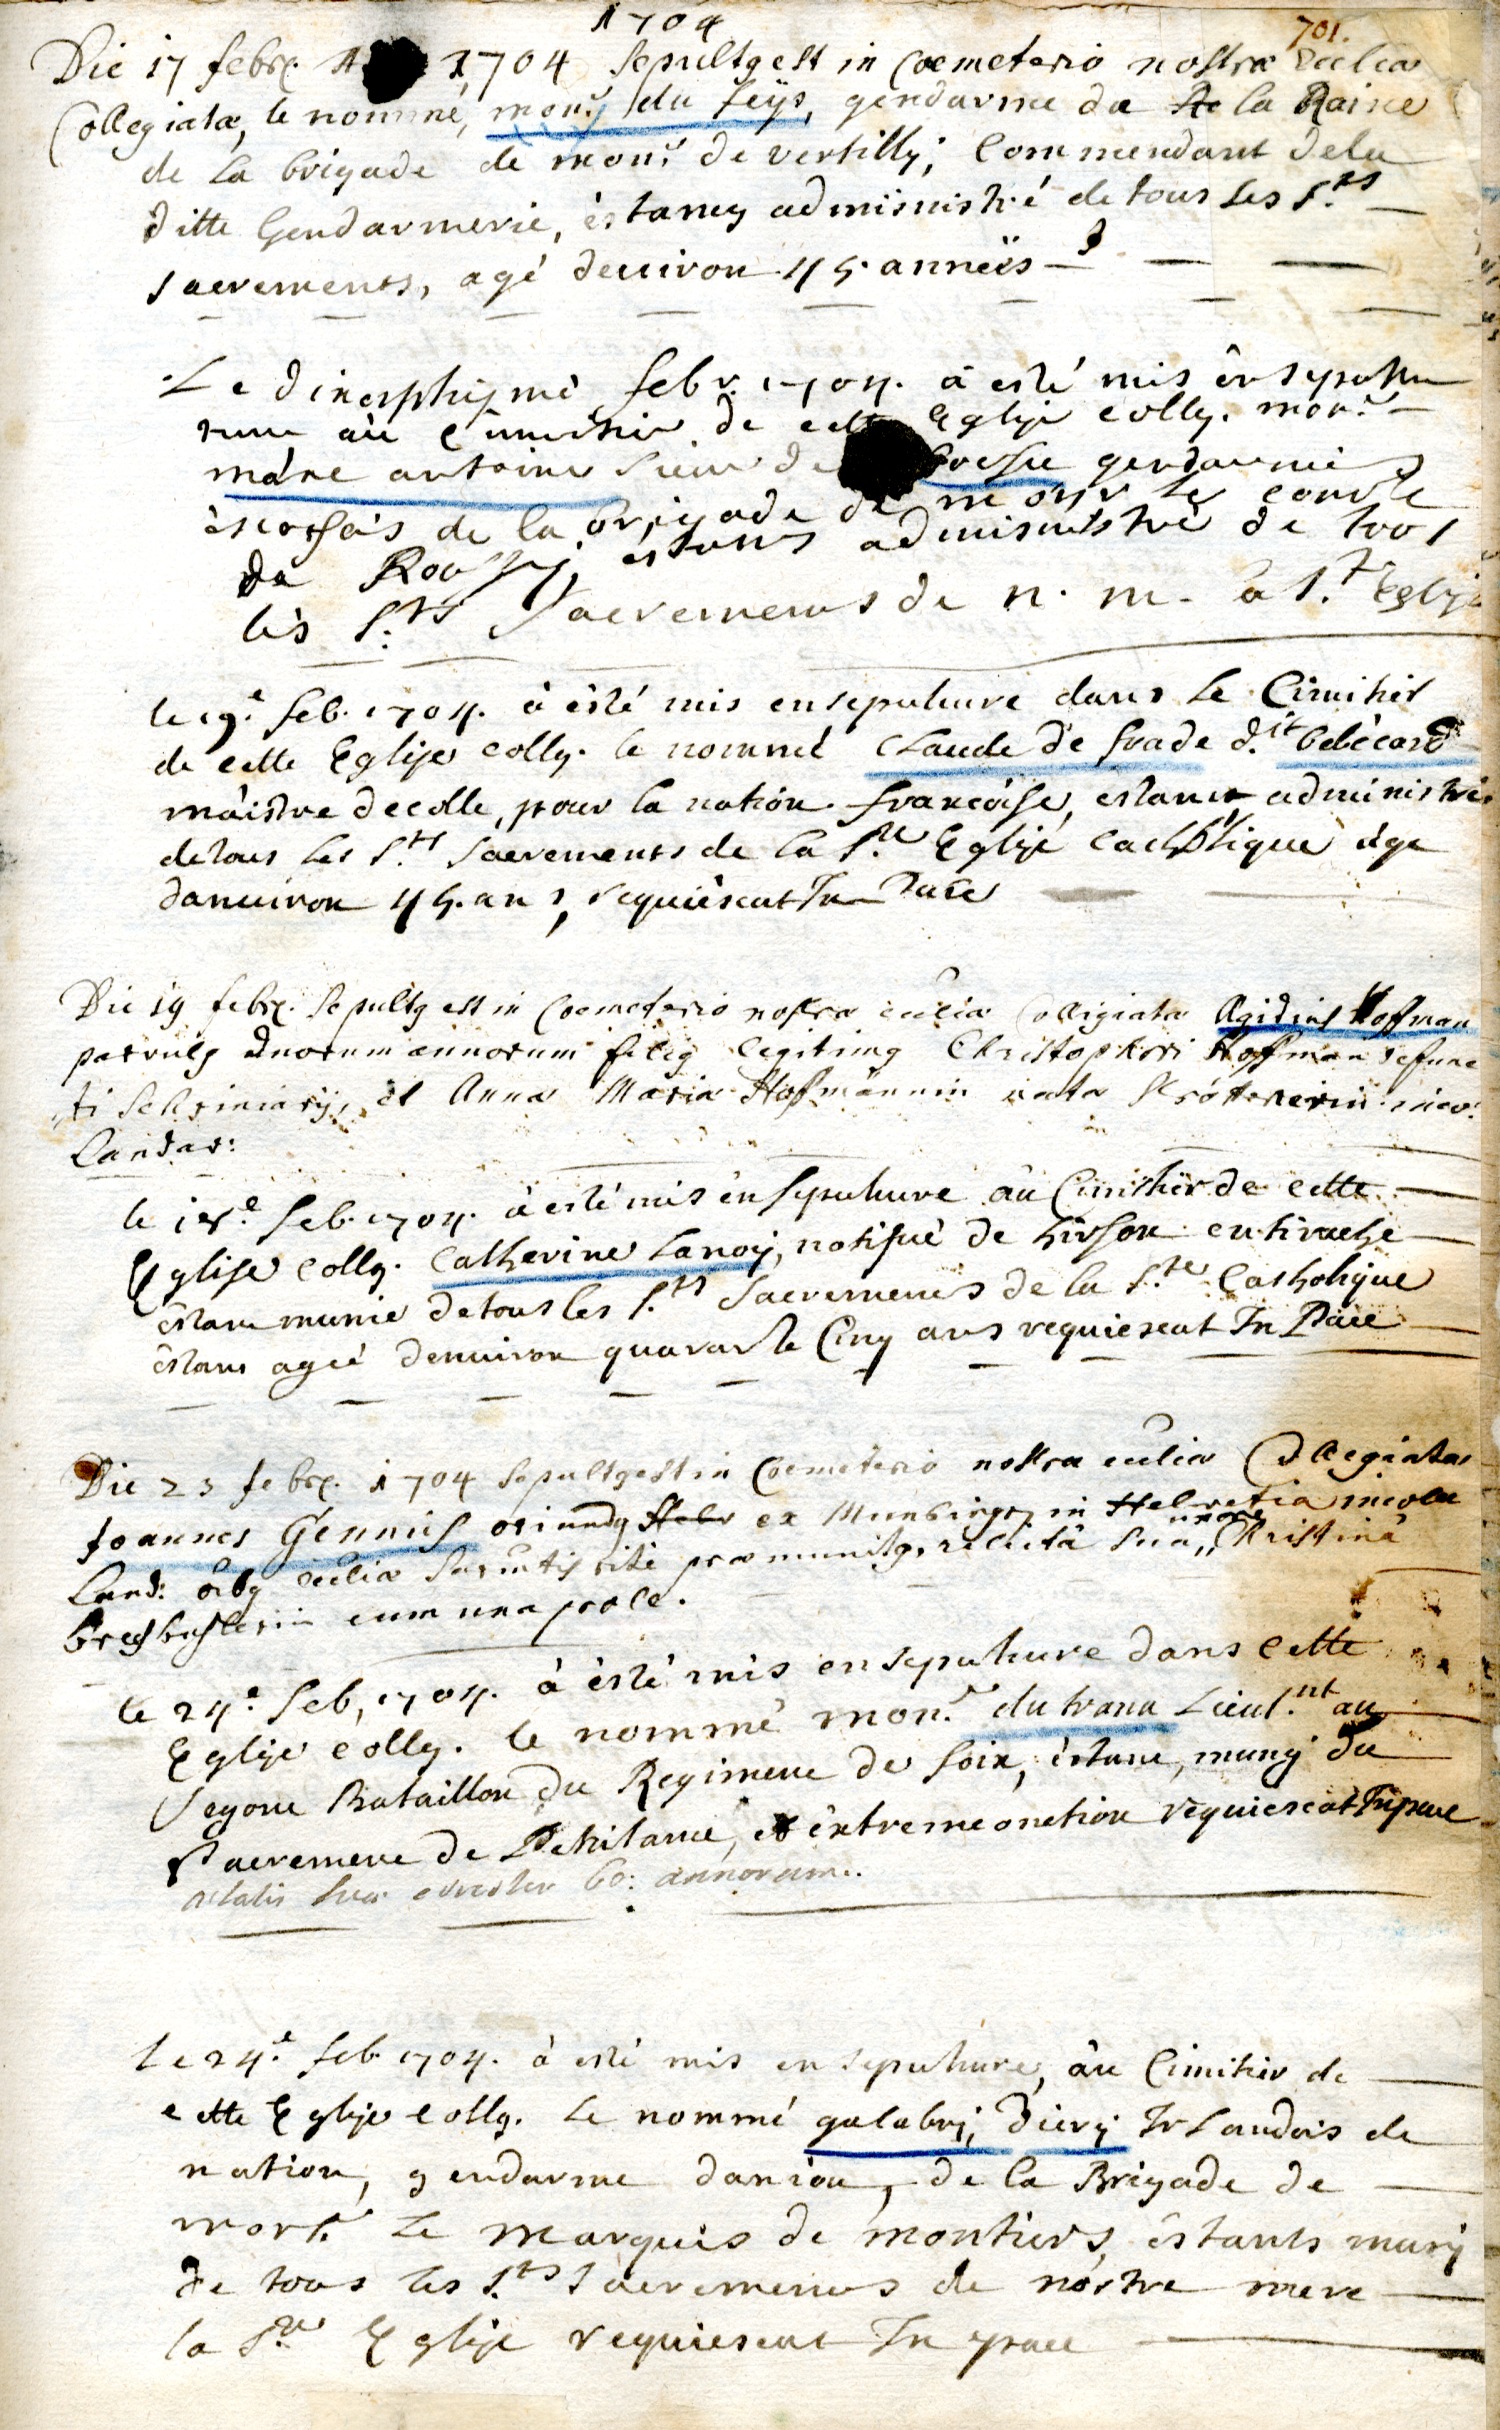 1704
701.
Die 17 febr. A 1704 Sepultq est in Coemeterio nostræ Ecclia
Collegiatæ, le nommé, monr. du feÿs, gendarme de la Raine
de La brigade de monr. de vertilly, Commendant dela
ditte Gendarmerie, éstang admisnistré de tous Les Sts
sacrements, agé denviron 45 annéés
Le dixesphiyme febr. 1704. à esté mis ên sepultu
rure aû Cimithier de cette Eglise colleg. monr.
marc antoine Sieur de gendarme
éscossois de la brigade de monsr le comte
de Roussy, éstans admisnistré de tous
lés Sts Sacremens de n. m. la St. Eglise
le 19e feb. 1704. à ésté mis en sepulture dans Le Cimitier
de cette Eglise colleg. le nommé Claude de frade d.it belécard
maistre decolle, pour la nation francoise, estant administré
detous Les Sts Sacrements de la Ste Eglise Catholique âge
danuiron 45. ans, requiéscat In Pace
Die 19 febr. Sepultq est in Coemeterio nostra ecclia Collegiata Ægidius Hoffman
parvulq duorum annorum filiq legitimq Christophori Hoffman defunc
ti Schriniarij, et Anna Maria Hoffmännin nata incol.
Landav:
le 18e feb. 1704. à esté mis én sepulture aû Cimithier de cette
Eglise colleg. Catherine Lanoy, notifué de hirson en tirache
éstant munie detous les Sts Sacremens de la Ste Catholique
éstans ageé denuiron quarante Cinq ans requiescat In Pace
Die 23 febr. 1704 Sepultq est in Coemeterio nostra ecclia Collegiata
Joannes Gennius oriundq Helv ex in Helvetia incola
Land: oibq ecclia Sacmtis rite præmunitq, relictâ sua uxore Christinâ
cum una prole.
le 24e feb, 1704. à ésté mis en sepulture dans cette
Eglise colleg. le nommé monr. du tranu Lieut.nt au
Segont Bataillon du Regiment de foix, éstant, muny du
Sacrement de Penitance, et éxtremeonction requiescat In pace
ætatis suæ circiter 60: annorum.
le 24e feb 1704. à esté mis en sepulture, âu Cimitier de
cette Eglise colleg. Le nommé galabry, diery Irlandois de
nation, gendarme daniou, de la Brigade de
monsr. Le marquis de montiers, êstants muny
de tous les Sts sacremens de nostre mere
la Ste Eglise requiescat In pace